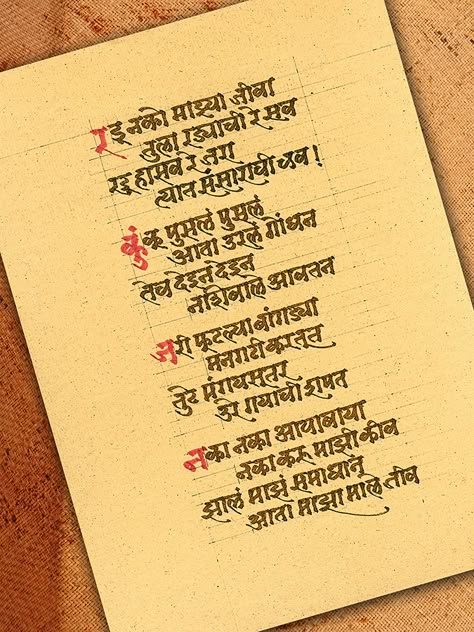 रडू नको माझ्या जीवा
तुला रड्याची रे सव
रडू हासव रे जरा
त्यात संसाराची चव !
कुंकू पुसलं पुसलं
आता उरलं गोंधन
तेच देईन देईन
नशिबाले आवतन
जरी फुटल्या बांगड्या
मनगटी करतूत
तुटे मंगयसूतर
उरे गयाची शपत
नका नका आयाबाया
नका करू माझी कीव
झालं माझं समाधान
आता माझा माले जीव